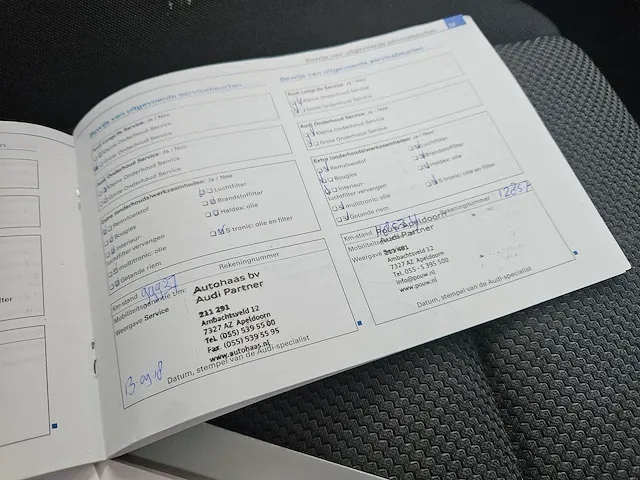 Bewijs van uitgevoerde servicebeurten
Audi LongLife Service: Ja / Nee
Kleine Onderhoud Service
Grote Onderhoud Service
Audi Onderhoud Service: Ja / Nee
Kleine Onderhoud Service
Grote Onderhoud Service
Extra (onderhouds)werkzaamheden: Ja / Nee
Remvloeistof
Bougies
Interieur-
luchtfilter vervangen
multitronic: olie
Getande riem
Luchtfilter
Brandstoffilter
Haldex: olie
S tronic: olie en filter
Km-stand
Rekeningnummer
Mobiliteitsgarantie t/m:
Weergave Service
Autohaas bv
Audi Partner
211 291
Ambachtsveld 12
7327 AZ Apeldoorn
Tel. (055) 539 55 00
Fax. (055) 539 55 95
www.autohaas.nl
13-09-18
Datum, stempel van de Audi-specialist
Bewijs van uitgevoerde servicebeurten
Bewijs van uitgevoerde servicebeurten
Audi LongLife Service: Ja / Nee
Kleine Onderhoud Service
Grote Onderhoud Service
Audi Onderhoud Service: Ja / Nee
Kleine Onderhoud Service
Grote Onderhoud Service
Extra (onderhouds)werkzaamheden: Ja / Nee
Remvloeistof
Bougies
Interieur-
luchtfilter vervangen
multitronic: olie
Getande riem
Luchtfilter
Brandstoffilter
Haldex: olie
S tronic: olie en filter
Km-stand
Rekeningnummer
Pouw Apeldoorn
Audi Partner
Weergave
Ambachtsveld 12
7327 AZ Apeldoorn
Tel. 055 - 5 395 500
info@pouw.nl
www.pouw.nl
Datum, stempel van de Audi-specialist